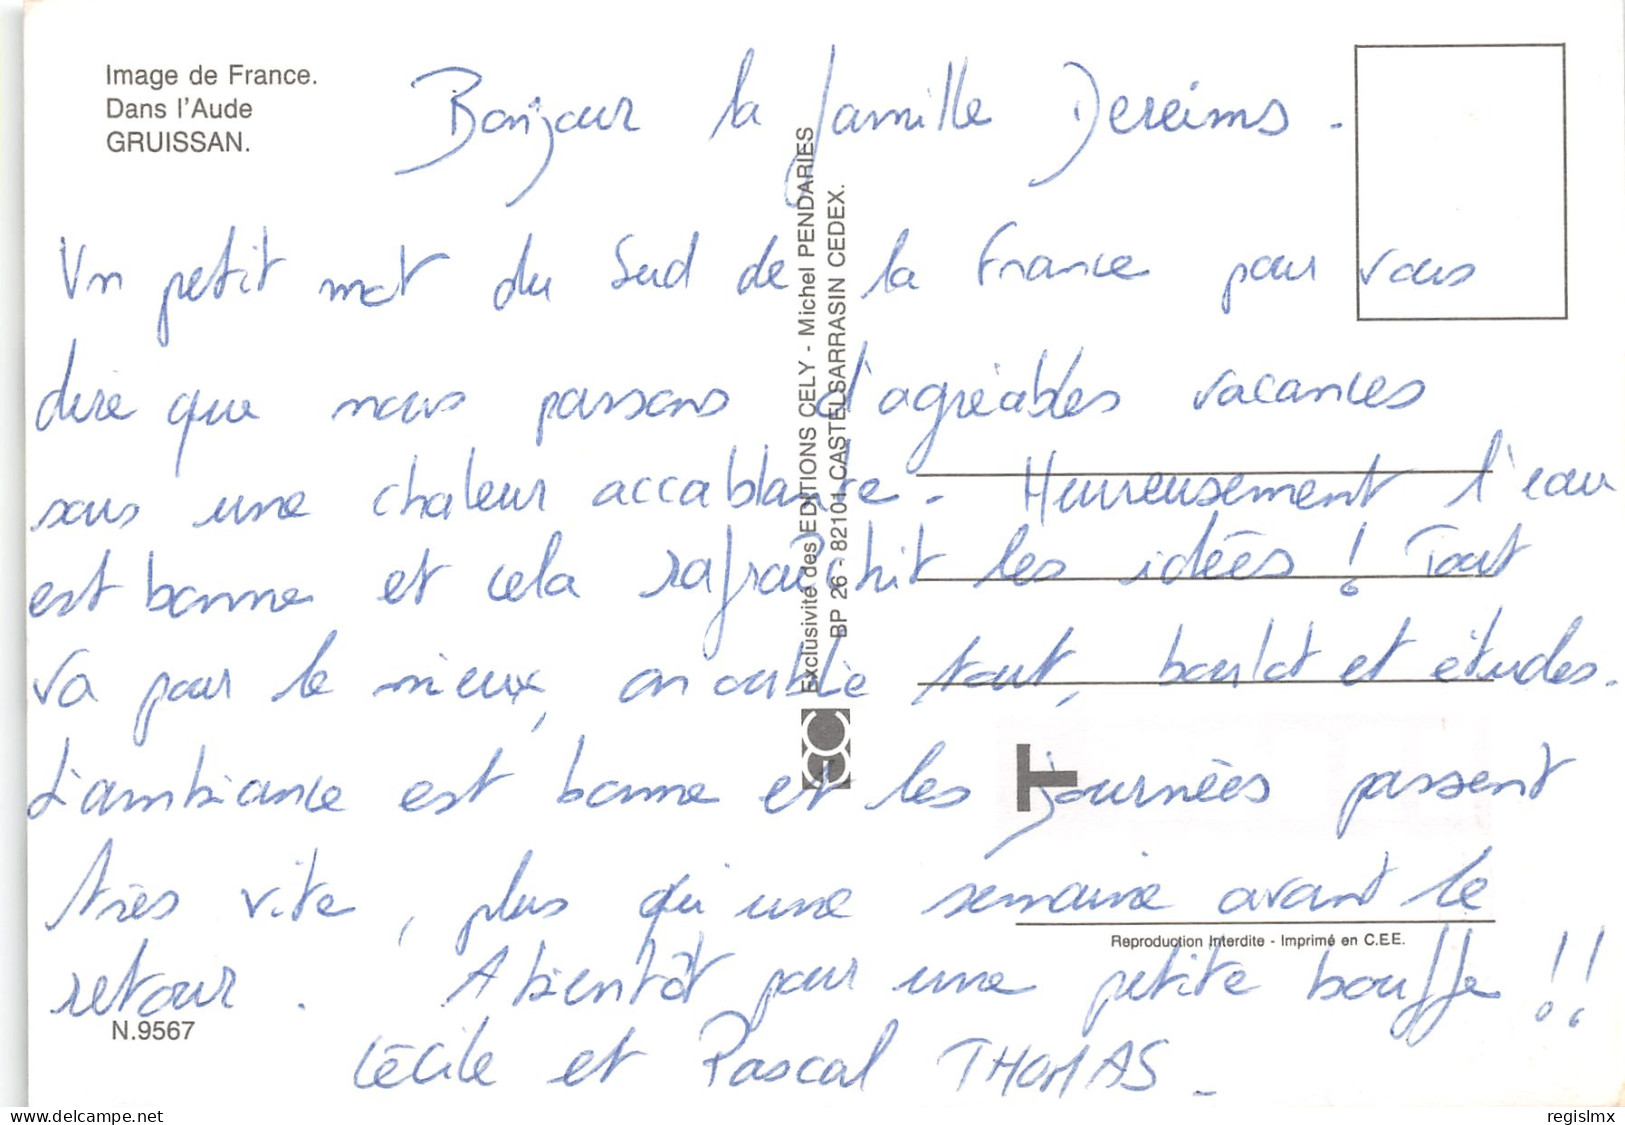 Image de France.
Dans l'Aude
GRUISSAN.
Bonjour la famille Dereims.
Un petit mot du Sud de la France pour vous
dire que nous passons d'agréables vacances
sous une chaleur accablante. Heureusement l'eau
est bonne et cela rafraîchit les idées ! Tout
va pour le mieux, on oublie tout, boulot et études.
L'ambiance est bonne et les journées passent
très vite, plus qu'une semaine avant le
retour. A bientôt pour une petite bouffe !!
Cécile et Pascal THOMAS -
Exclusivité des EDITIONS CELY - Michel PENDARIES
BP 26 - 82101 CASTELSARRASIN CEDEX.
T
Reproduction Interdite - Imprimé en C.E.E.
N.9567
delcampe.net
regislmx